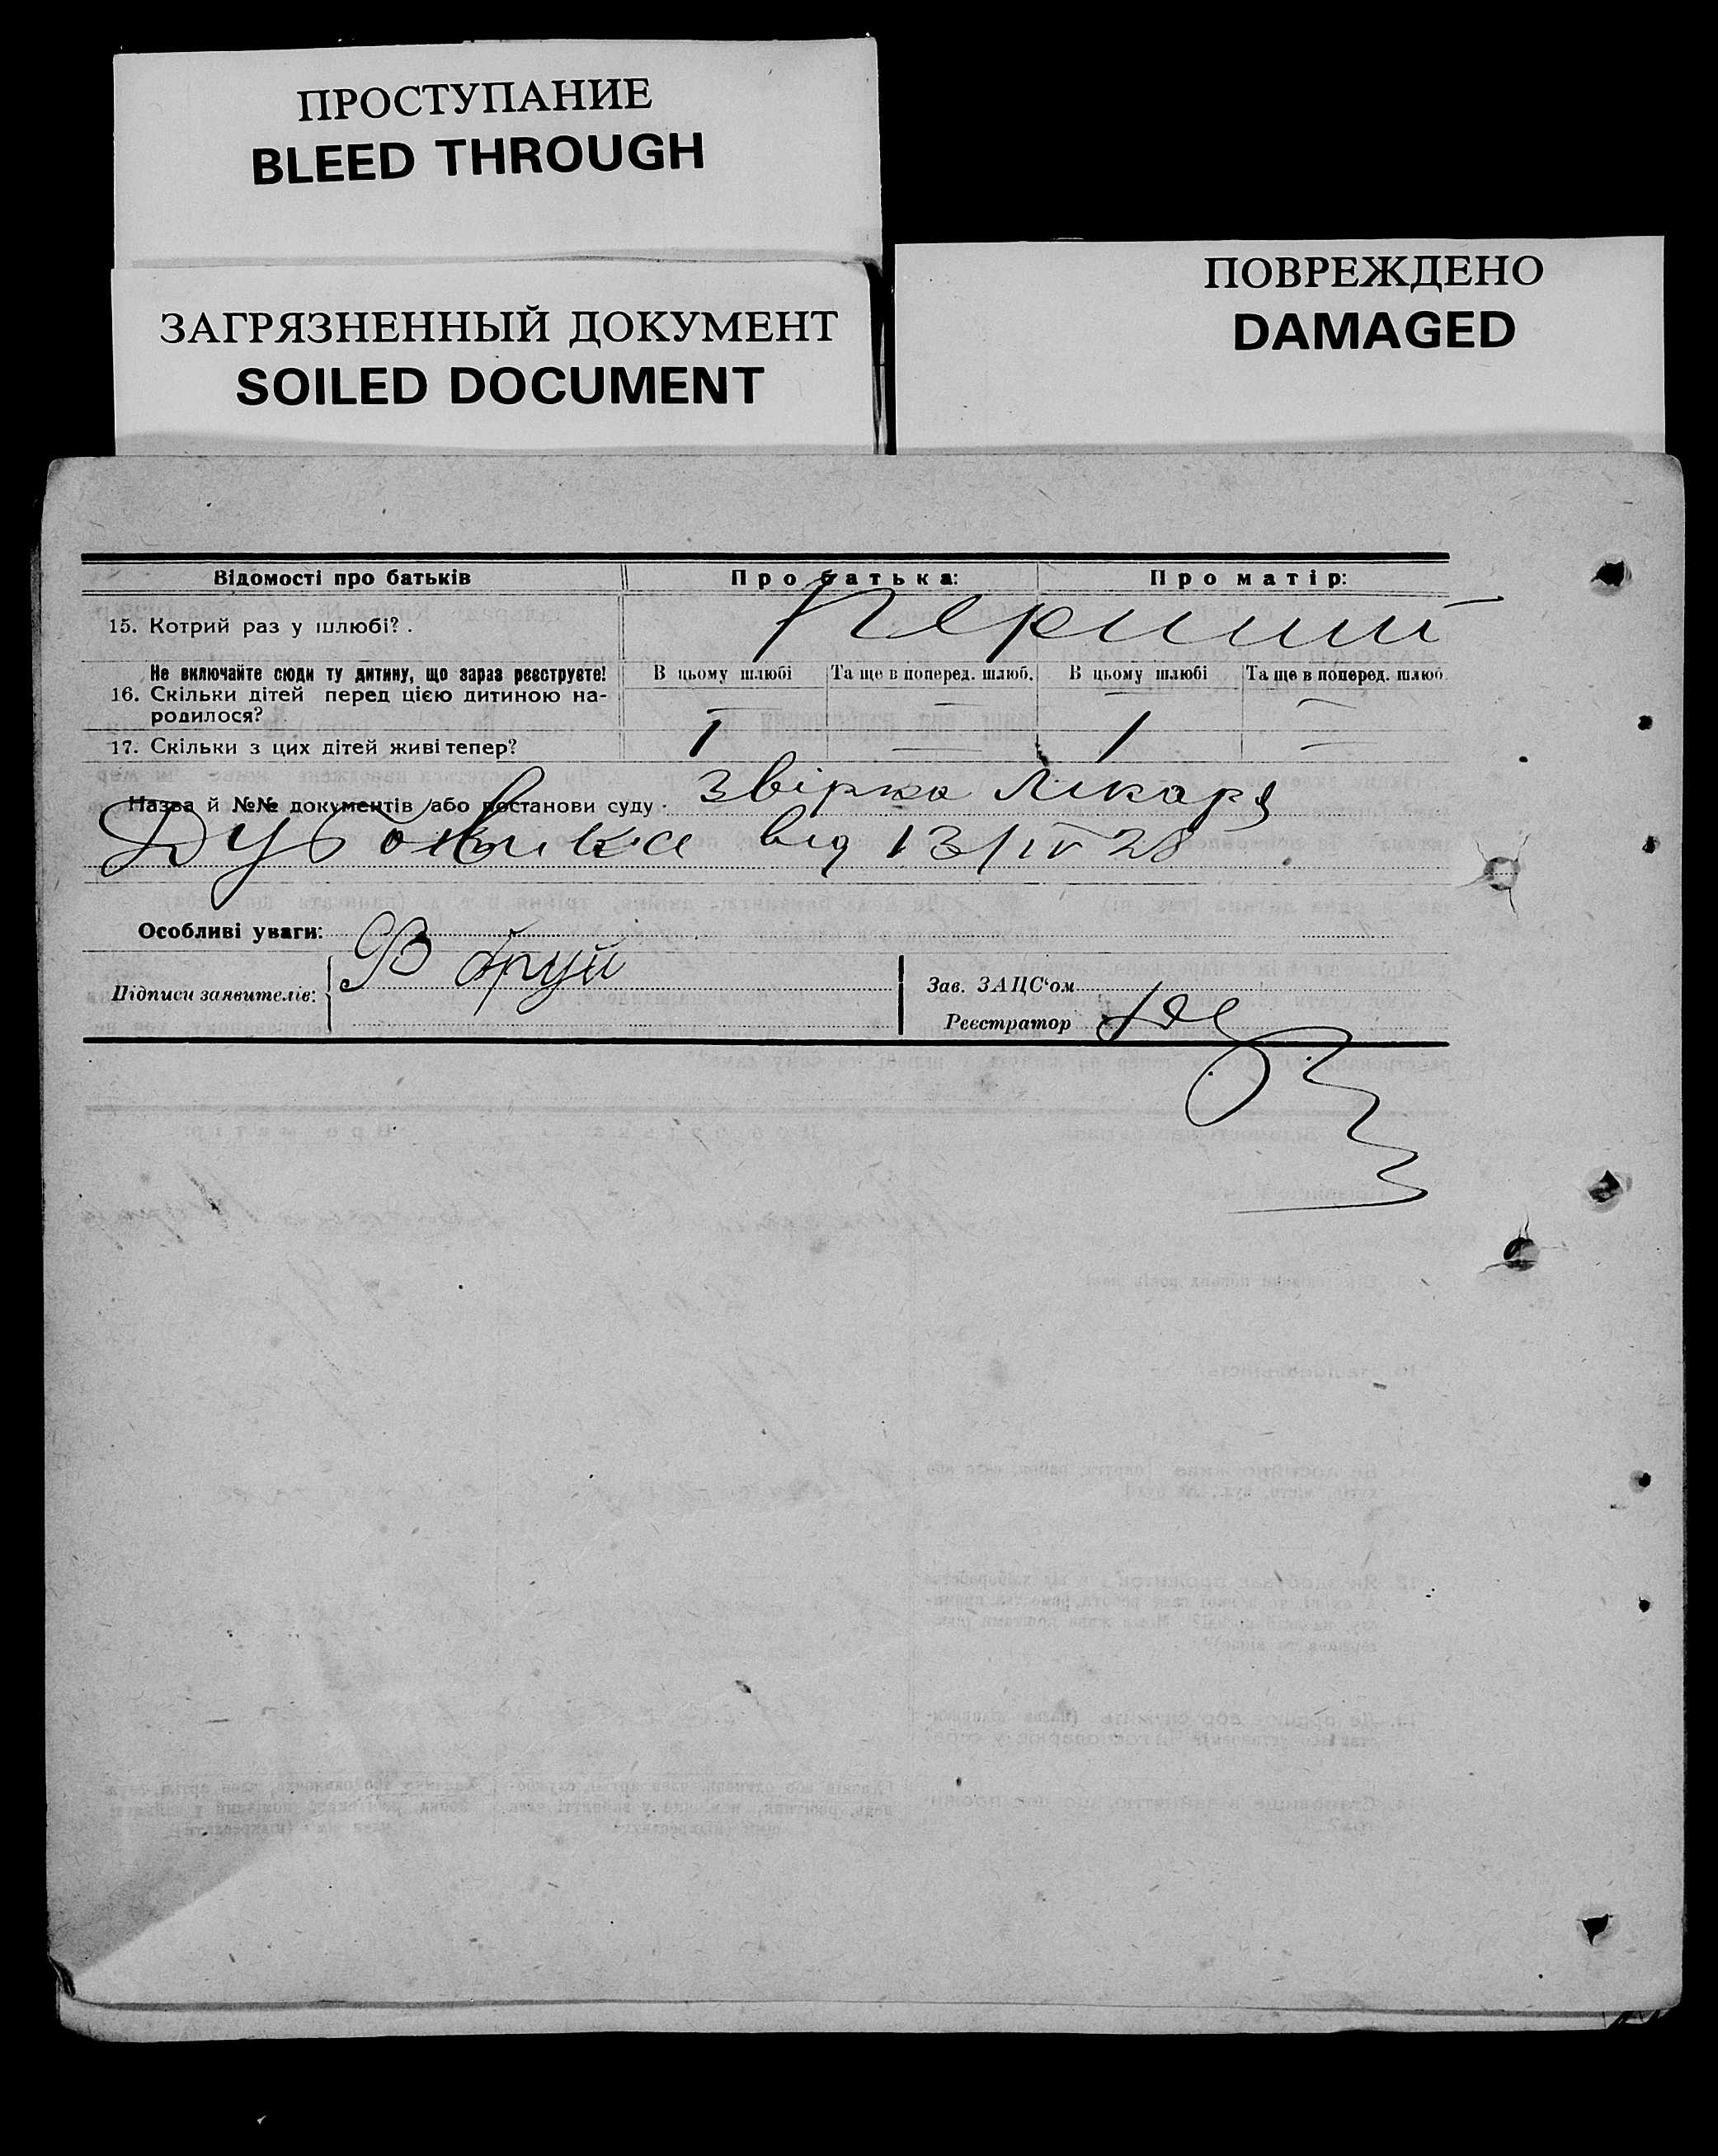 ПРОСТУПАНИЕ
BLEED THROUGH
ЗАГРЯЗНЕННЫЙ ДОКУМЕНТ
SOILED DOCUMENT
ПОВРЕЖДЕНО
DAMAGED
Відомості про батьків Про батька: Про матір:
15. Котрий раз у шлюбі? . Перший
Не включайте сюди ту дитину, що зараз реєструєте! В цьому шлюбі Та ще в поперед. шлюб. В цьому шлюбі Та ще в поперед. шлюб.
16. Скільки дітей перед цією дитиною на-
родилося? 1 — — —
17. Скільки з цих дітей живі тепер? — 1 —
Назва й №№ документів або постанови суду звірка Лікаря
від 13/IV 28
Особливі уваги:
Підписи заявителів:
Зав. ЗАЦС'ом
Реєстратор